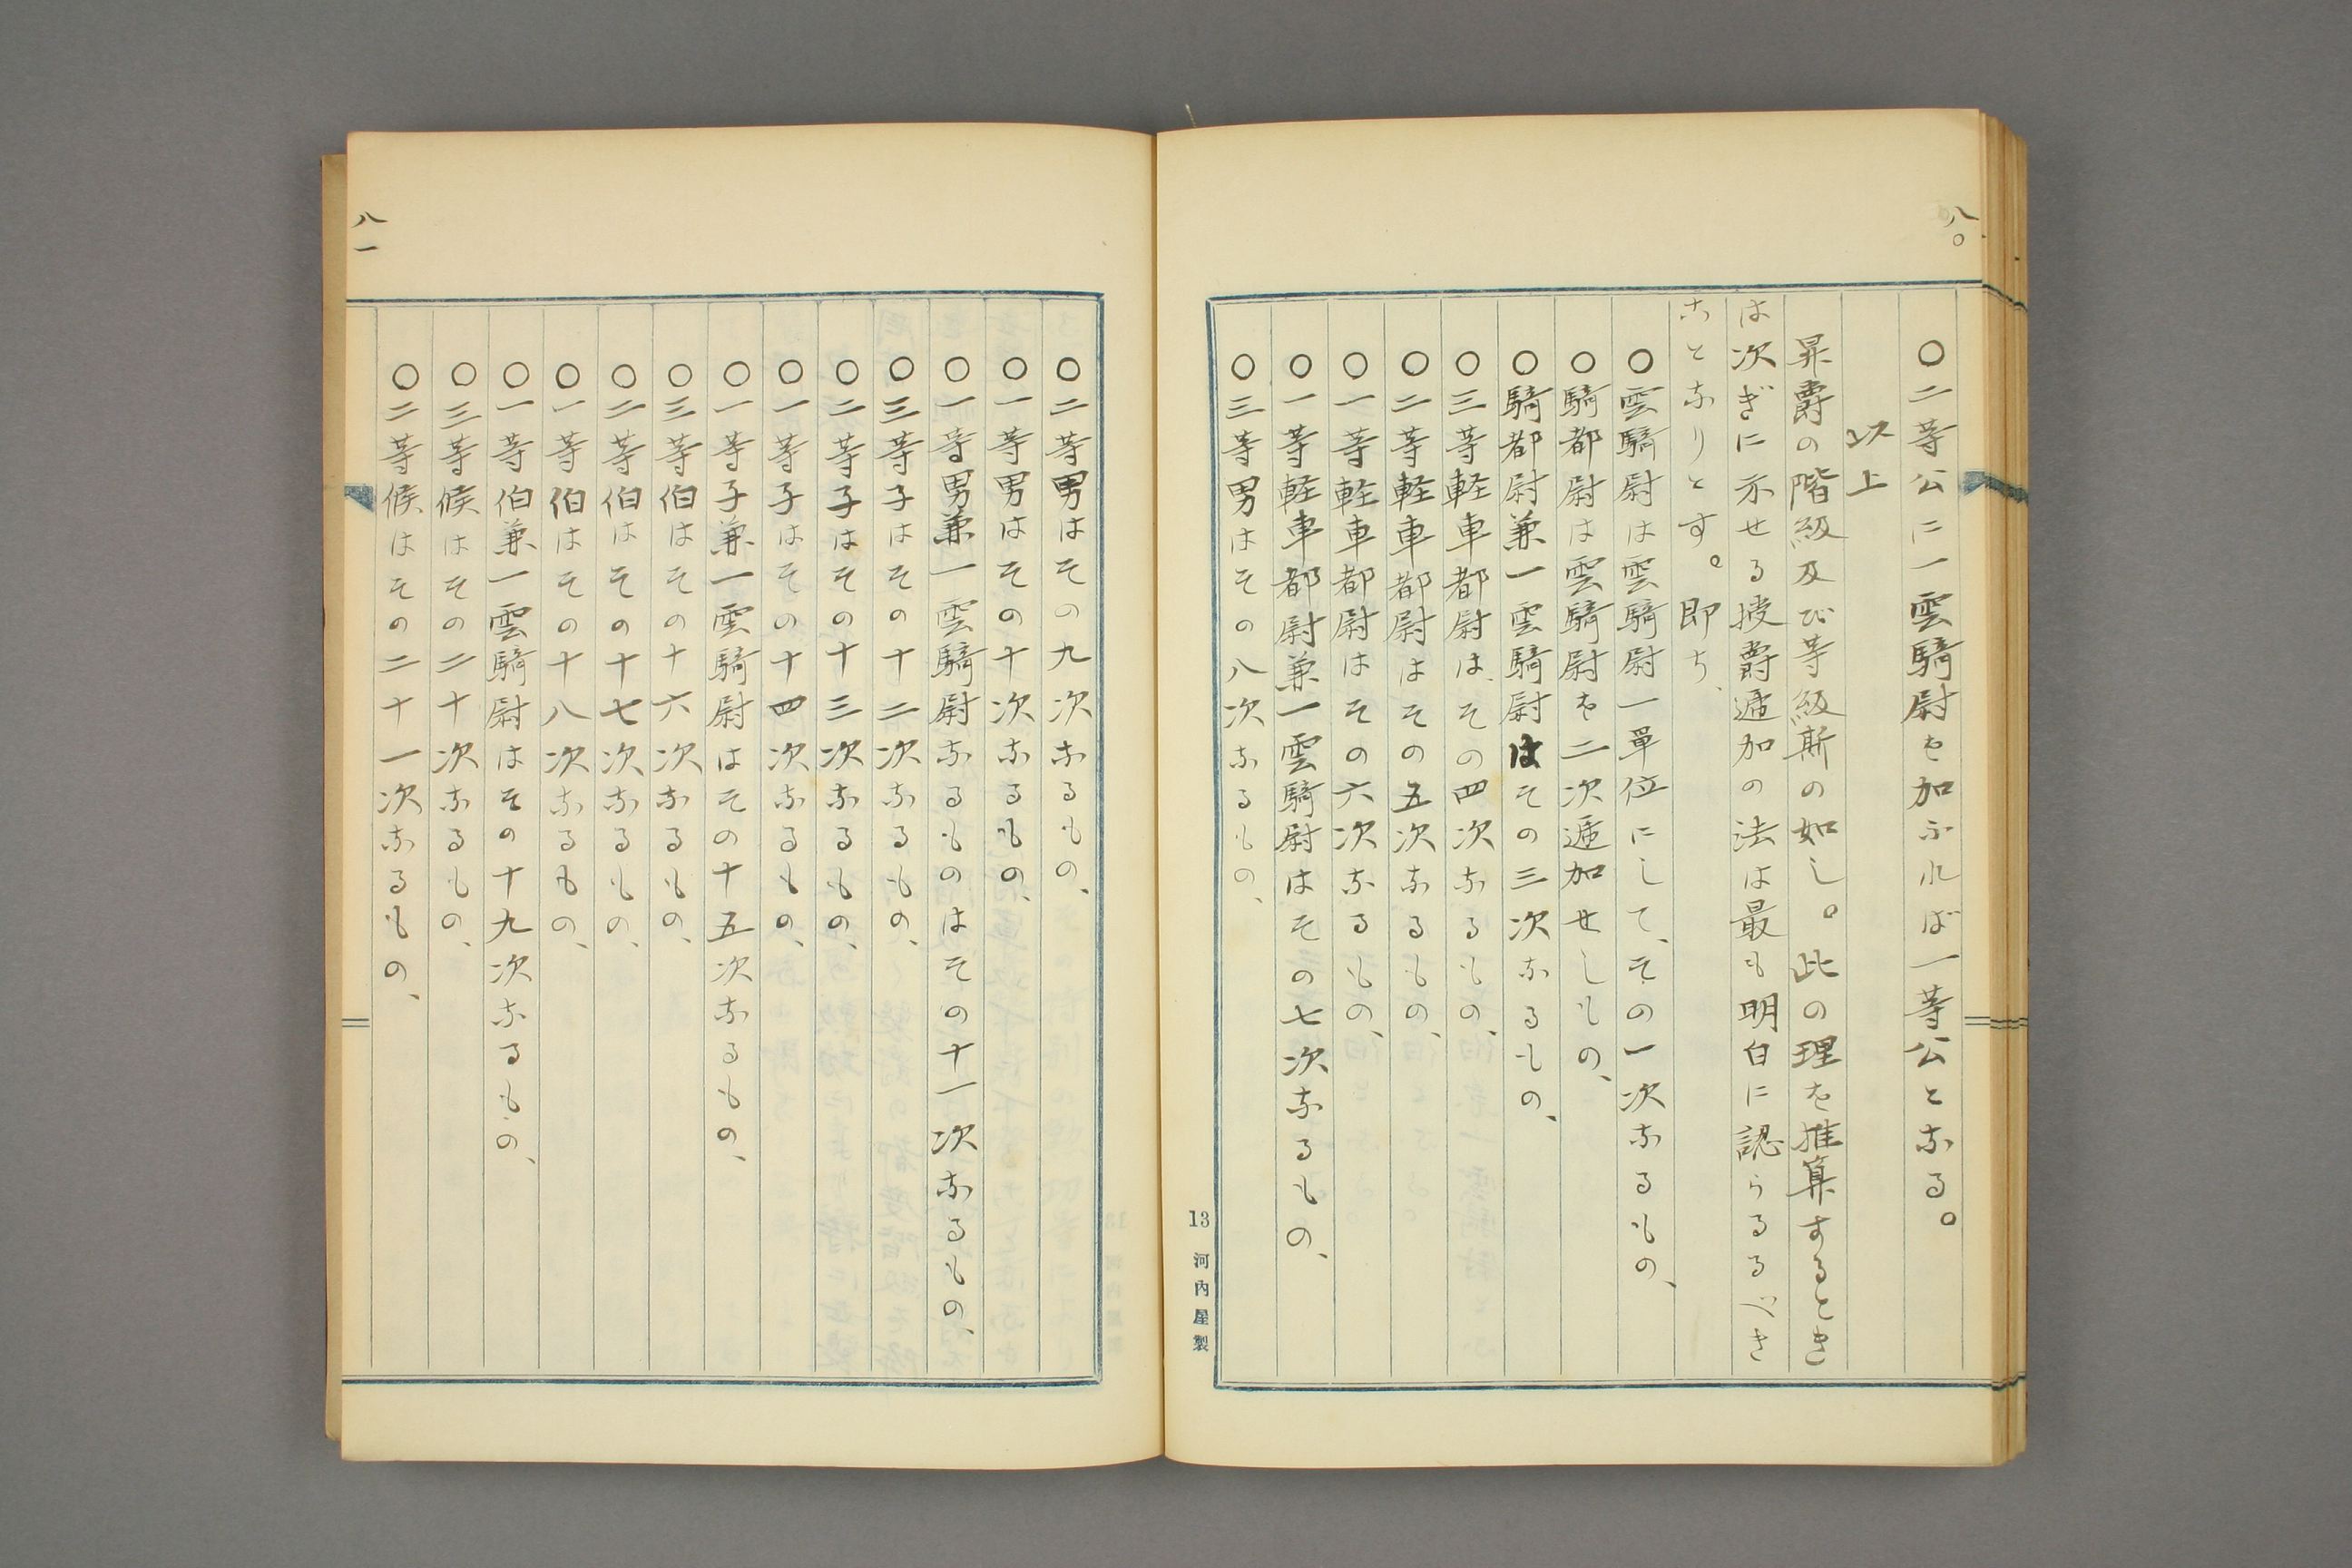 八〇
〇二等公に一雲騎尉を加ふれば一等公となる。
以上
昇爵の階級及び等級斯の如し。此の理を推算するとき
は次ぎに示せる授爵遞加の法は最も明白に認らるるべき
ことなりとす。即ち、
〇雲騎尉は雲騎尉一單位にして、その一次なるもの、
〇騎都尉は雲騎尉を二次遞加せしもの、
〇騎都尉兼一雲騎尉はその三次なるもの、
〇三等軽車都尉はその四次なるもの、
〇二等軽車都尉はその五次なるもの、
〇一等軽車都尉はその六次なるもの、
〇一等軽車都尉兼一雲騎尉はその七次なるもの、
〇三等男はその八次なるもの、
13 河内屋製
八一
〇二等男はその九次なるもの、
〇一等男はその十次なるもの、
〇一等男兼一雲騎尉なるものはその十一次なるもの、
〇三等子はその十二次なるもの、
〇二等子はその十三次なるもの、
〇一等子はその十四次なるもの、
〇一等子兼一雲騎尉はその十五次なるもの、
〇三等伯はその十六次なるもの、
〇二等伯はその十七次なるもの、
〇一等伯はその十八次なるもの、
〇一等伯兼一雲騎尉はその十九次なるもの、
〇三等候はその二十次なるもの、
〇二等候はその二十一次なるもの、